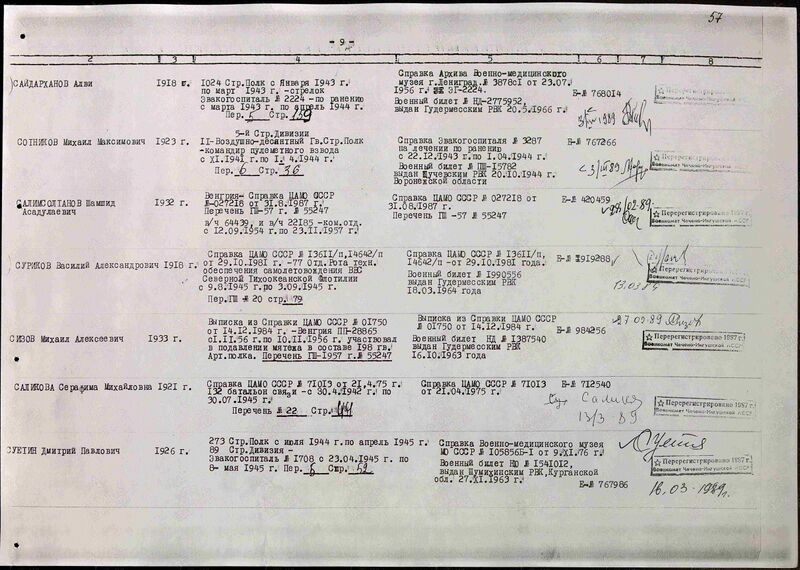 57
- 9 -
2 3 4 5 6 7 8
САЙДАРХАНОВ Алви 1918 г. 1024 Стр.Полк с Января 1943 г. по март 1943 г. -стрелок Эвакогоспиталь № 2224 -по ранению с марта 1943 г. по апрель 1944 г. Пер. 5 Стр. 139
Справка Архива Военно-медицинского музея г.Ленинград. № 3878с1 от 23.07. 1956 г. ЭГ-2224.
Военный билет № НД-2775952, выдан Гудермесским РВК 20.5.1966 г.
Е-№ 768014
1989
Военкомат Чечено-Ингушской
СОТНИКОВ Михаил Максимович 1923 г. 5-й Стр.Дивизии 11-Воздушно-десантный Гв.Стр.Полк -командир пулеметного взвода с XI.1941 г.по 1.4.1944 г.
Пер. 6 Стр. 36
Справка Эвакогоспиталя № 3287 на лечении по ранению с 22.12.1943 г. по 1.04.1944 г.
Военный билет № ГШ-15782 выдан Щучевским РВК 20.10.1944 г. Воронежской области
Е-№ 767266
3/III 89
Перерегистрировано 1987 г.
Военкомат Чечено-Ингушской АССР
САЛИМСОЛТАНОВ Шамшид Асадулаевич 1932 г. Венгрия- Справка ЦАМО СССР №-027218 от 31.8.1987 г. Перечень ГШ-57 № 55247
в/ч 64439, и в/ч 22185 -ком.отд. с 12.09.1954 г.по 23.11.1957 г.
Справка ЦАМО СССР № 027218 от 31.08.1987 г.
Перечень ГШ -57 № 55247
Е-№ 420459
28/02-89
Перерегистрировано 1987 г.
Военкомат Чечено-Ингушской АССР
СУРИКОВ Василий Александрович 1918 г. Справка ЦАМО СССР № 13611/п,14642/п от 29.10.1981 г. -77 Отд.Рота техн. обеспечения самолетовождения ВВС Северной Тихоокеанской Флотилии с 9.8.1945 г.по 3.09.1945 г.
Пер.ГШ № 20 стр. 79
Справка ЦАМО СССР № 13611/п, 14642/п -от 29.10.1981 года.
Военный билет № 1990556 выдан Гудермесским РВК 18.03.1964 года
Е-№ 1919288
Перерегистрировано 1987 г.
Военкомат Чечено-Ингушской АССР
СИЗОВ Михаил Алексеевич 1933 г. Выписка из Справки ЦАМО СССР № 01750 от 14.12.1984 г. -Венгрия ПП-28865 с1.11.56 г. по 10.11.1956 г. участвовал в подавлении мятежа в составе 198 гв. Арт.полка. Перечень ГШ-1957 г.№ 55247
Выписка из Справки ЦАМО СССР № 01750 от 14.12.1984 г.
Военный билет НД № 1387540 выдан Гудермесским РВК 16.10.1963 года
Е-№ 984256
27.02.89 Сизов
Перерегистрировано 1987 г.
Военкомат Чечено-Ингушской АССР
САЛИКОВА Серафима Михайловна 1921 г. Справка ЦАМО СССР № 71013 от 21.4.75 г. 132 батальон связи -с 30.4.1942 г. по 30.07.1945 г.
Перечень № 22 Стр. 441
Справка ЦАМО СССР № 71013 от 21.04.1975 г.
Е-№ 712540
13/3 89
Перерегистрировано 1987 г.
Военкомат Чечено-Ингушской АССР
СУЕТИН Дмитрий Павлович 1926 г. 273 Стр.Полк с июля 1944 г.по апрель 1945 г. 89 Стр.Дивизия - Эвакогоспиталь № 1708 с 23.04.1945 г. по 8- мая 1945 г. Пер. 5 Стр. 52
Справка Военно-медицинского музея МО СССР № 105856Б-1 от 9.XI.76 г.
Военный билет НО № 1541012, выдан Шумихинским РВК,Курганской обл. 27.XI.1963 г.
Е-№ 767986
Суетин
Перерегистрировано 1987 г.
Военкомат Чечено-Ингушской АССР
16.03-1989г.